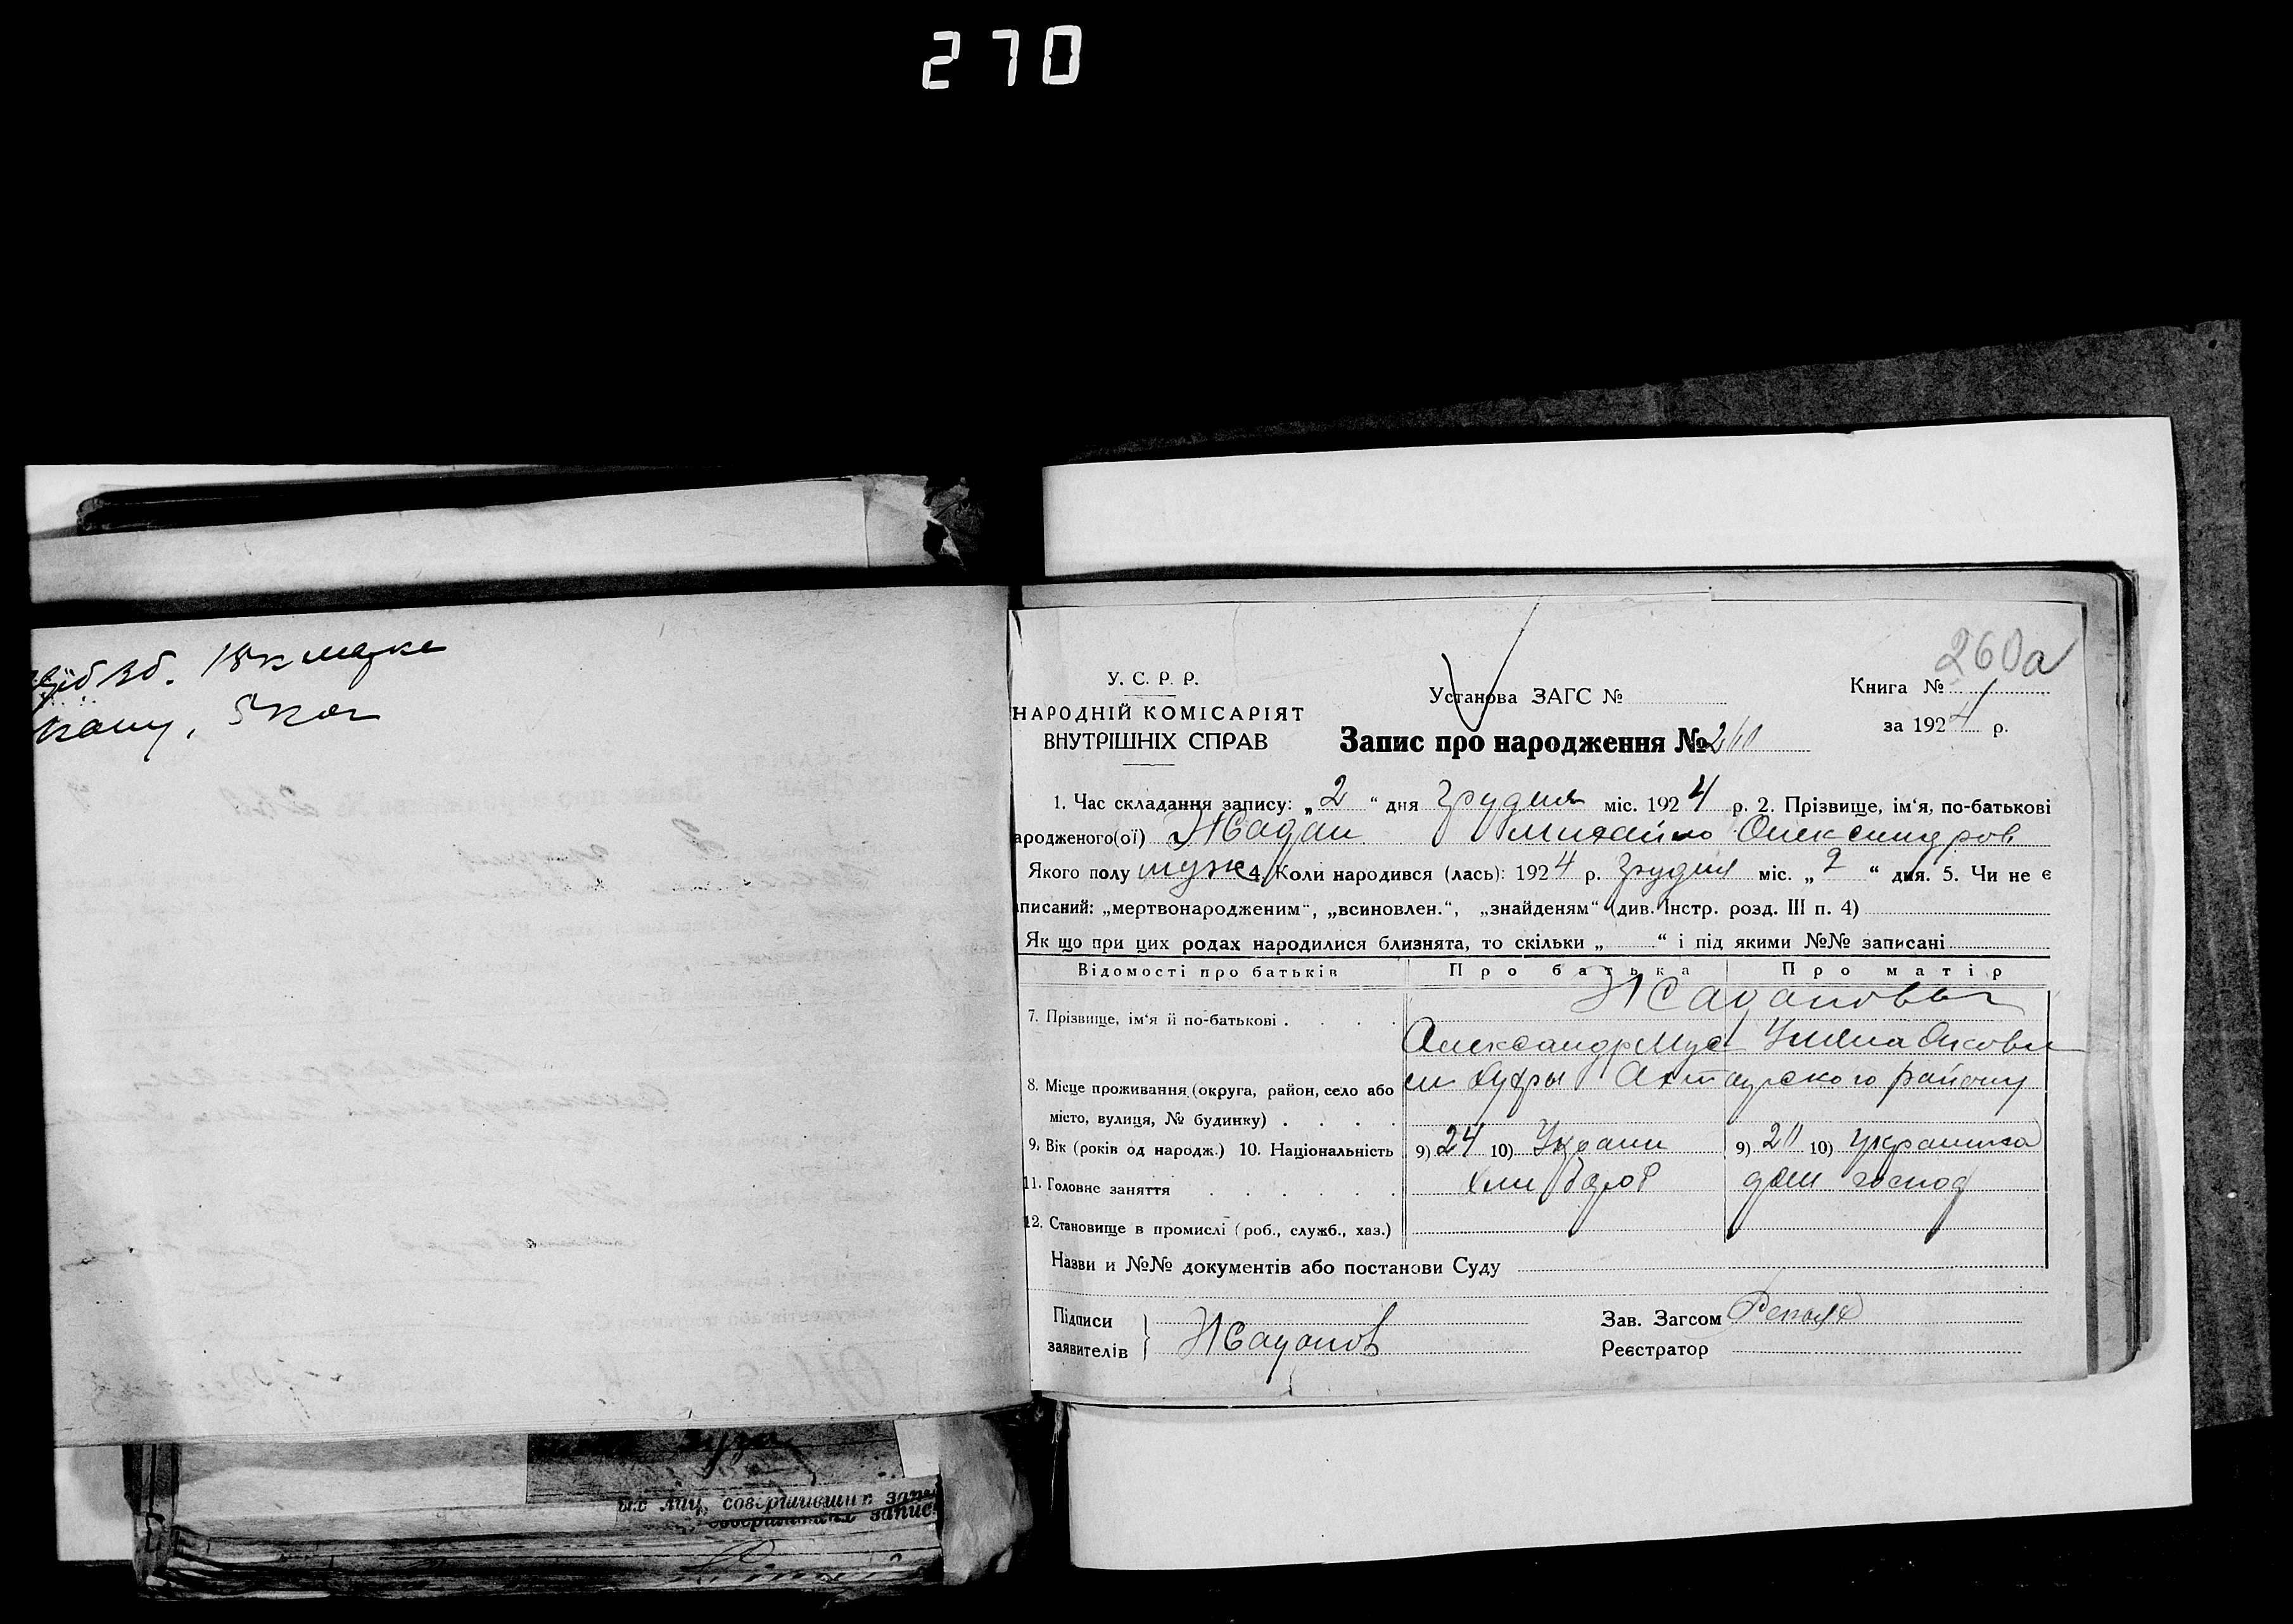 270
18к марке
5 коп
260а
У. С. Р. Р.
НАРОДНІЙ КОМІСАРІЯТ
ВНУТРІШНІХ СПРАВ
Установа ЗАГС №
Запис про народження № 260
Книга №
за 1924 р.
1. Час складання запису: „2“ дня Грудня міс. 1924 р. 2. Прізвище, ім‘я, по-батькові
ародженого(ої) Жадан Михайло Олександров
Якого полу муж 4. Коли народився (лась): 1924 р. Грудня міс. „2“ дня. 5. Чи не є
писаний: „мертвонародженим“, „всиновлен.“, „знайденям“ (див. Інстр. розд. III п. 4)
Як що при цих родах народилися близнята, то скільки „ “ і під якими №№ записані
Відомості про батьків Про батька Про матір
7. Прізвище, ім‘я й по-батькові . . . . Жадановы
Александр Мус Уляна Яковл
8. Місце проживання (округа, район, село або Хухры Ахтырского району
місто, вулиця, № будинку) . . . .
9. Вік (років од народж.) 10. Національність 9) 24 10) Украин 9) 20 10) украинка
11. Головне заняття . . . . . . Хлибороб дом господ
12. Становище в промислі (роб., служб., хаз.)
Назви и №№ документів або постанови Суду
Підписи
заявителів } Жаданов
Зав. Загсом
Реєстратор
ых лиц, совершивших запи
совершивших запис